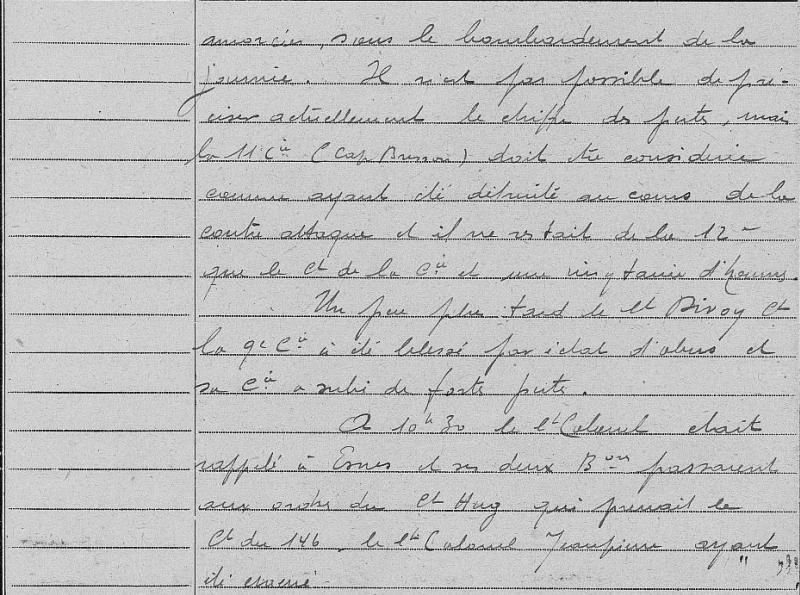 amorcées, sous le bombardement de la
journée. Il n'est pas possible de pré-
ciser actuellement le chiffre des pertes, mais
la 11e Cie (Cap Buisson) doit être considérée
comme ayant été détruite au cours de la
contre attaque et il ne restait de la 12e
que le Ct de la Cie et une vingtaine d'hommes.
Un peu plus tard le Lt Biroy Ct
la 9e Cie à été blessé par éclat d'obus et
sa Cie a subi de fortes pertes.
A 10h30 le Lt Colonel était
rappelé à Esnes et ses deux Bons passaient
aux ordres du Ct Hug qui prenait le
Ct du 146, le Lt Colonel Jeanpierre ayant
été évacué.